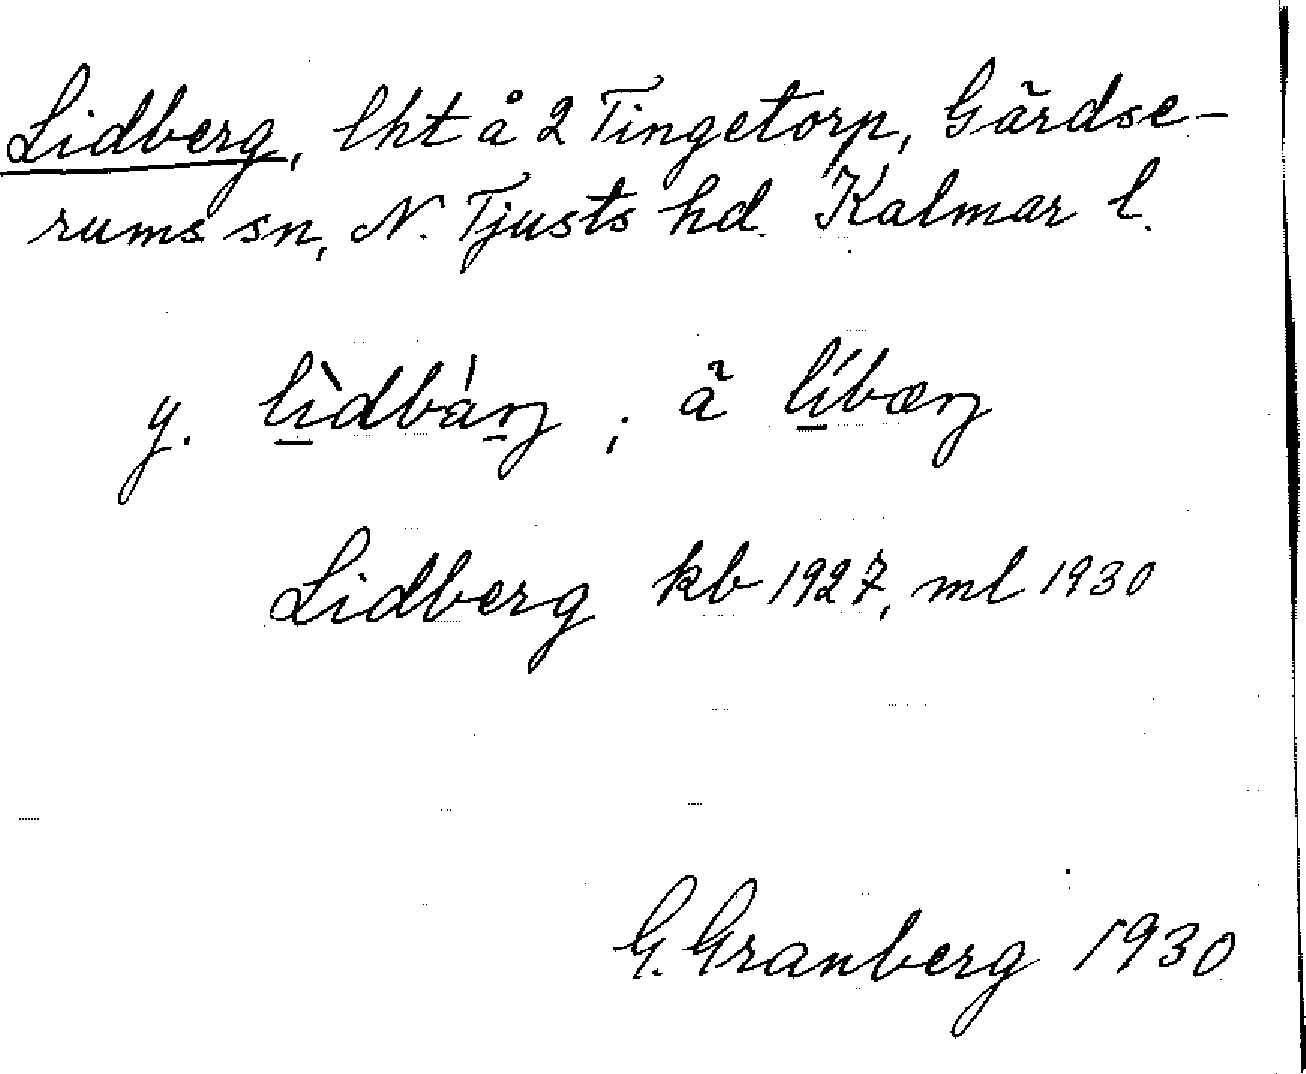 Lidberg, lht å 2 Tingetorp, Gärdse-
rums sn, N. Tjusts hd. Kalmar l.
y. lìdbárj ; ä̃ líbærj
Lidberg kb 1927, ml 1930
G. Granberg 1930